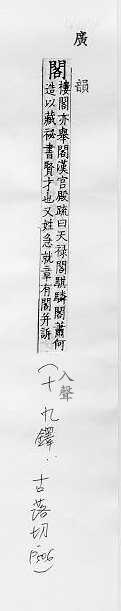 廣韻
閣
樓閣亦舉閣漢宫殿疏曰天禄閣騏驎閣蕭何
造以藏祕書賢才也又姓急就章有閣幷訢
入聲
(十九鐸：古落切.P506)